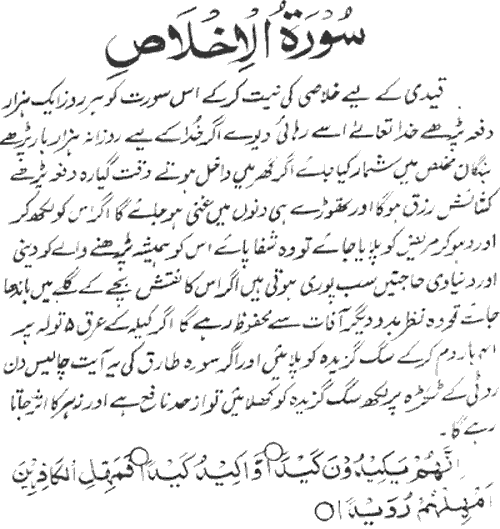 سُوْرَةُ الْاِخْلَاصِ
قیدی کے لیے خلاصی کی نیت کرکے اس سورت کو ہر روز ایک ہزار
دفعہ پڑھے خدا تعالےٰ اسے رہائی دیوے اگر خُدا کے لیے روزانہ ہزار بار پڑھے
بندگان مخلص میں شمار کیا جائے اگر گھر میں داخل ہونے وقت گیارہ دفعہ پڑھے
کشائش رزق ہوگا اور تھوڑے ہی دنوں میں غنی ہو جائے گا اگر اس کو لکھ کر
اور دھو کر مریض کو پلایا جائے تو وہ شفا پائے اس کو ہمیشہ پڑھنے والے کو دینی
اور دنیاوی حاجتیں سب پوری ہوتی ہیں اگر اس کا نقش بچے کے گلے میں باندھا
جائے تو وہ نظر بد و دیگر آفات سے محفوظ رہے گا اگر کیلہ کے عرق ۵ تولہ پر
۱۱ بار دم کرکے سگ گزیدہ کو پلائیں اور اگر سورہ طارق کی یہ آیت چالیس دن
روٹی کے ٹکڑہ پر لکھ سگ گزیدہ کو کھلائیں تو از حد نافع ہے اور زہر کا اثر جاتا
رہے گا۔
اِنَّهُمْ يَكِيْدُوْنَ كَيْدًا وَّاَكِيْدُ كَيْدًا فَمَهِّلِ الْكَافِرِيْنَ
اَمْهِلْهُمْ رُوَيْدًا